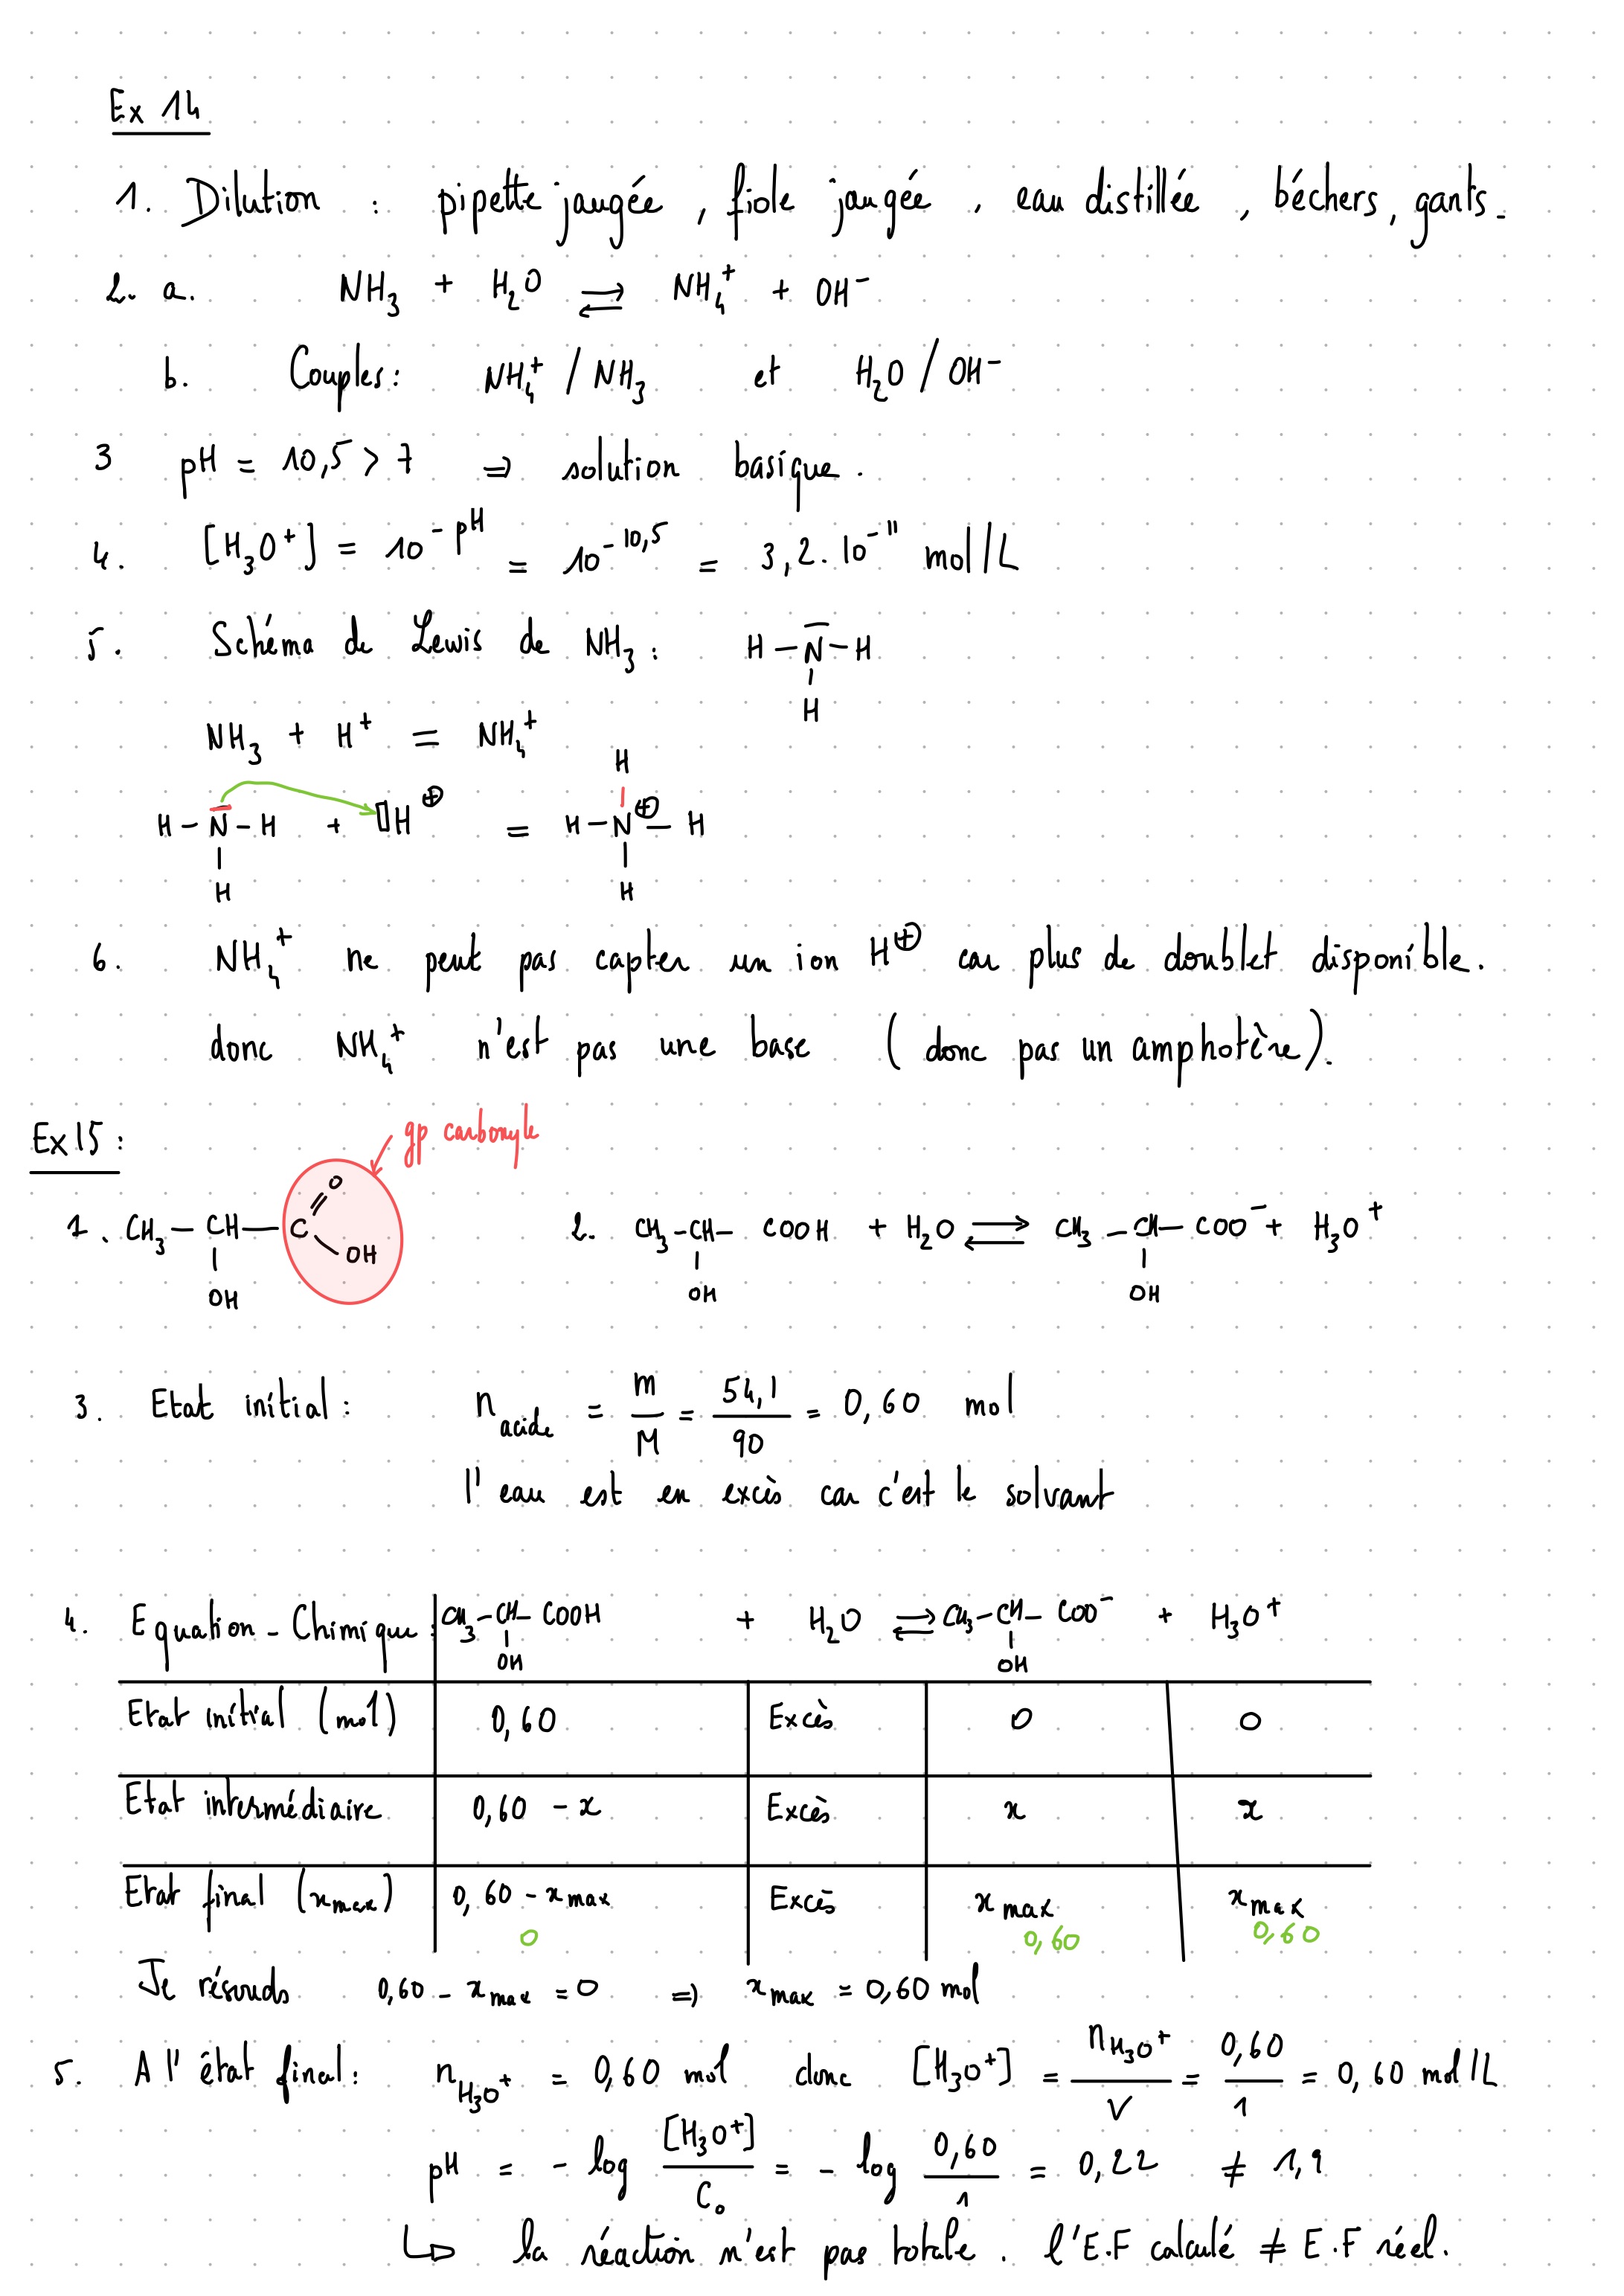 Ex 14
1. Dilution : pipette jaugée, fiole jaugée, eau distillée, béchers, gants.
2. a. NH₃ + H₂O ⇌ NH₄⁺ + OH⁻
b. Couples : NH₄⁺ / NH₃ et H₂O / OH⁻
3 pH = 10,5 > 7 ⇒ solution basique.
4. [H₃O⁺] = 10⁻ᵖᴴ = 10^-10,5 = 3,2.10⁻¹¹ mol/L
5. Schéma de Lewis de NH₃ : H – N – H
H
NH₃ + H⁺ = NH₄⁺
H
H – N – H + H⊕ = H – N⊕ – H
H H
6. NH₄⁺ ne peut pas capter un ion H⊕ car plus de doublet disponible.
donc NH₄⁺ n'est pas une base (donc pas un amphotère).
Ex 15 :
gp carbonyle
1. CH₃ – CH – C
O
OH
OH
2. CH₃ – CH – COOH + H₂O ⇌ CH₃ – CH – COO⁻ + H₃O⁺
OH OH
3. Etat initial : n acide = m/M = 54,1/90 = 0,60 mol
l'eau est en excès car c'est le solvant
4. Equation-Chimique : CH₃ – CH – COOH + H₂O ⇌ CH₃ – CH – COO⁻ + H₃O⁺
OH OH
Etat initial (mol) 0,60 Excès 0 0
Etat intermédiaire 0,60 - x Excès x x
Etat final (x max) 0,60 - x max Excès x max x max
0 0,60 0,60
Je résouds 0,60 - x max = 0 ⇒ x max = 0,60 mol
5. A l'état final : n H₃O⁺ = 0,60 mol donc [H₃O⁺] = n H₃O⁺/V = 0,60/1 = 0,60 mol/L
pH = - log [H₃O⁺]/C₀ = - log 0,60/1 = 0,22 ≠ 1,9
↳ la réaction n'est pas totale. l'E.F calculé ≠ E.F réel.